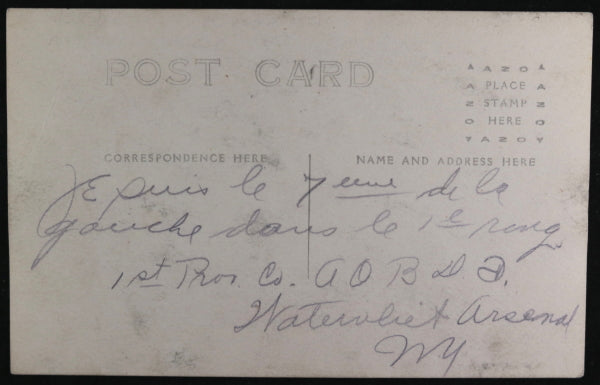 POST CARD
AZO
PLACE
STAMP
HERE
AZO
CORRESPONDENCE HERE
NAME AND ADDRESS HERE
JE suis le 7 eme de la
gauche dans le 1e rang
1st Prov. Co. A O B D D.
Watervliet Arsenal
NY